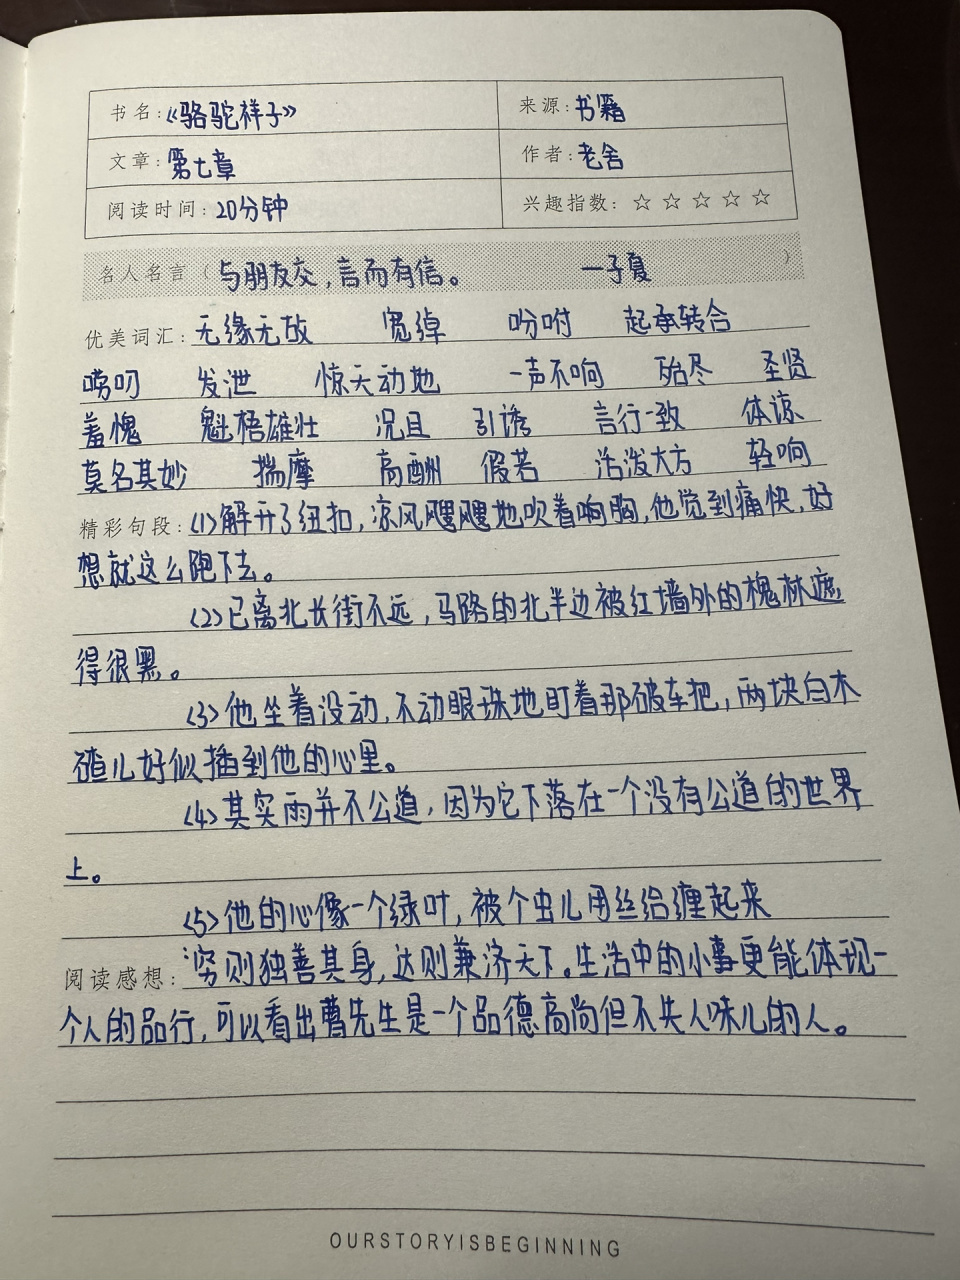 书名:《骆驼祥子》 来源:书籍
文章:第七章 作者:老舍
阅读时间:20分钟 兴趣指数:☆☆☆☆☆
名人名言(与朋友交,言而有信。 —子夏)
优美词汇:无缘无故 宽绰 吩咐 起承转合
唠叨 发泄 惊天动地 一声不响 殆尽 圣贤
羞愧 魁梧雄壮 况且 引诱 言行一致 体谅
莫名其妙 揣摩 高酬 假若 活泼大方 轻响
精彩句段:(1)解开了纽扣,凉风飕飕地吹着响胸,他觉到痛快,好
想就这么跑下去。
(2)已离北长街不远,马路的北半边被红墙外的槐林遮
得很黑。
(3)他坐着没动,不动眼珠地盯着那破车把,两块白木
碴儿好似插到他的心里。
(4)其实雨并不公道,因为它下落在一个没有公道的世界
上。
(5)他的心像一个绿叶,被个虫儿用丝给缠起来
阅读感想:穷则独善其身,达则兼济天下。生活中的小事更能体现一
个人的品行,可以看出曹先生是一个品德高尚但不失人味儿的人。
OURSTORYISBEGINNING